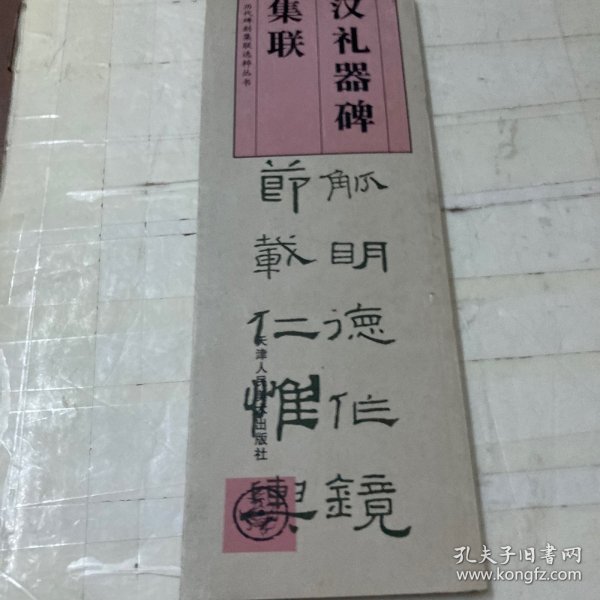 汉礼器碑
集联
历代碑刻集联选粹丛书
觚明德作镜
節載仁惟輿
天津人民美术出版社
孔夫子旧书网
www.kongfz.com